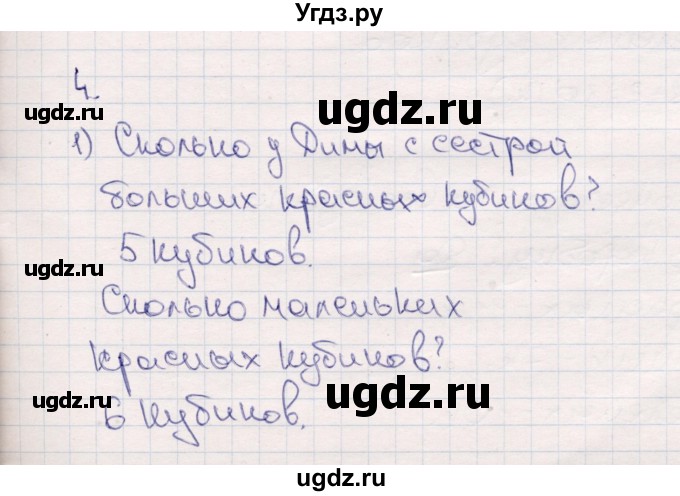 Угдз.ру
4.
1) Сколько у Димы с сестрой
больших красных кубиков?
5 кубиков.
Сколько маленьких
красных кубиков?
6 кубиков.
ugdz.ru
ugdz.ru
ugdz.ru
ugdz.ru
ugdz.ru
ugdz.ru
ugdz.ru
ugdz.ru